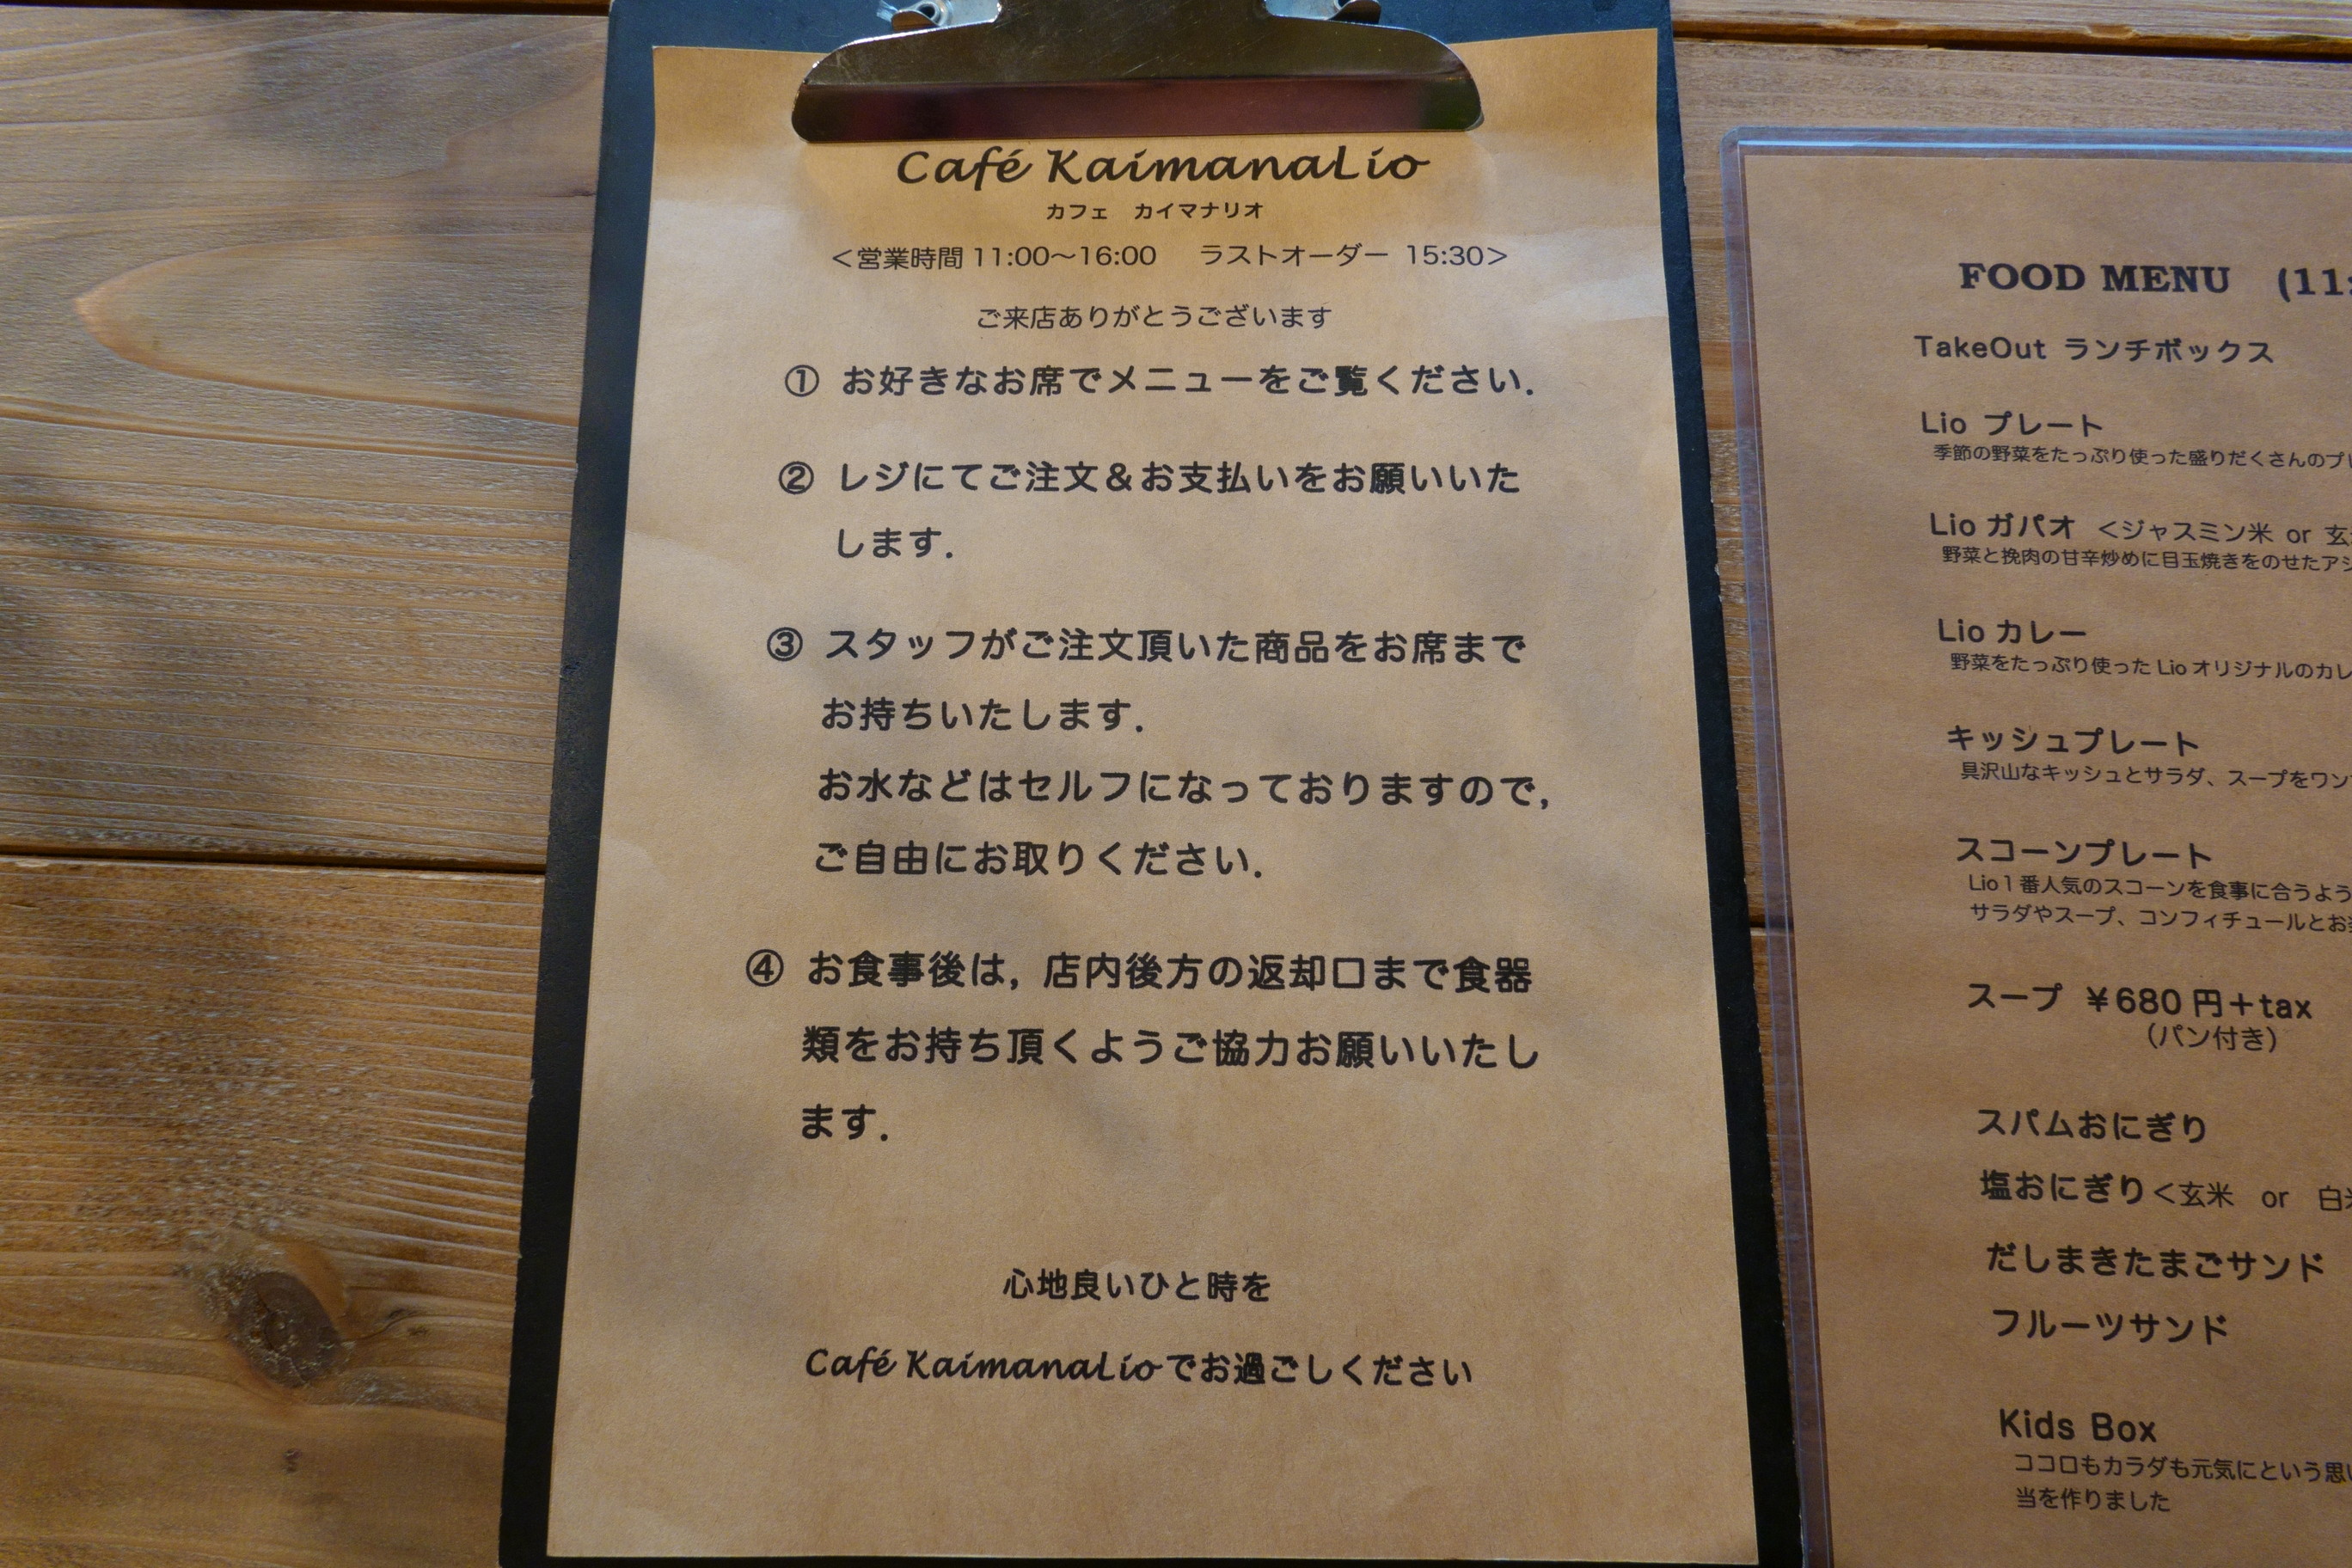 Café KaimanaLio
カフェ　カイマナリオ
＜営業時間 11:00～16:00　ラストオーダー 15:30＞
ご来店ありがとうございます
① お好きなお席でメニューをご覧ください．
② レジにてご注文＆お支払いをお願いいた
します．
③ スタッフがご注文頂いた商品をお席まで
お持ちいたします．
お水などはセルフになっておりますので，
ご自由にお取りください．
④ お食事後は，店内後方の返却口まで食器
類をお持ち頂くようご協力お願いいたし
ます．
心地良いひと時を
Café KaimanaLioでお過ごしください
FOOD MENU (11:
TakeOut ランチボックス
Lio プレート
季節の野菜をたっぷり使った盛りだくさんのプ
Lio ガパオ ＜ジャスミン米 or 玄
野菜と挽肉の甘辛炒めに目玉焼きをのせたアジ
Lio カレー
野菜をたっぷり使った Lio オリジナルのカレ
キッシュプレート
具沢山なキッシュとサラダ、スープをワン
スコーンプレート
Lio 1 番人気のスコーンを食事に合うよう
サラダやスープ、コンフィチュールとお
スープ ￥680 円＋tax
（パン付き）
スパムおにぎり
塩おにぎり＜玄米 or 白
だしまきたまごサンド
フルーツサンド
Kids Box
ココロもカラダも元気にという思
当を作りました